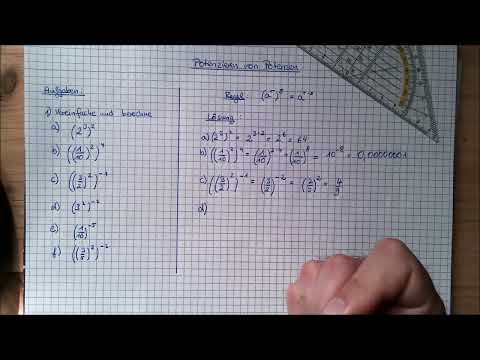 Potenzieren von Potenzen
Aufgaben:
1) Vereinfache und berechne
a) (2³)²
b) ((1/10)²)⁴
c) ((3/2)²)⁻¹
d) (3²)⁻²
e) (1/10)⁻⁵
f) ((3/5)²)⁻²
Regel: (aʳ)ˢ = aʳ·ˢ
Lösung:
a) (2³)² = 2³·² = 2⁶ = 64
b) ((1/10)²)⁴ = (1/10)²·⁴ = (1/10)⁸ = 10⁻⁸ = 0,00000001
c) ((3/2)²)⁻¹ = (3/2)⁻² = (2/3)² = 4/9
d)